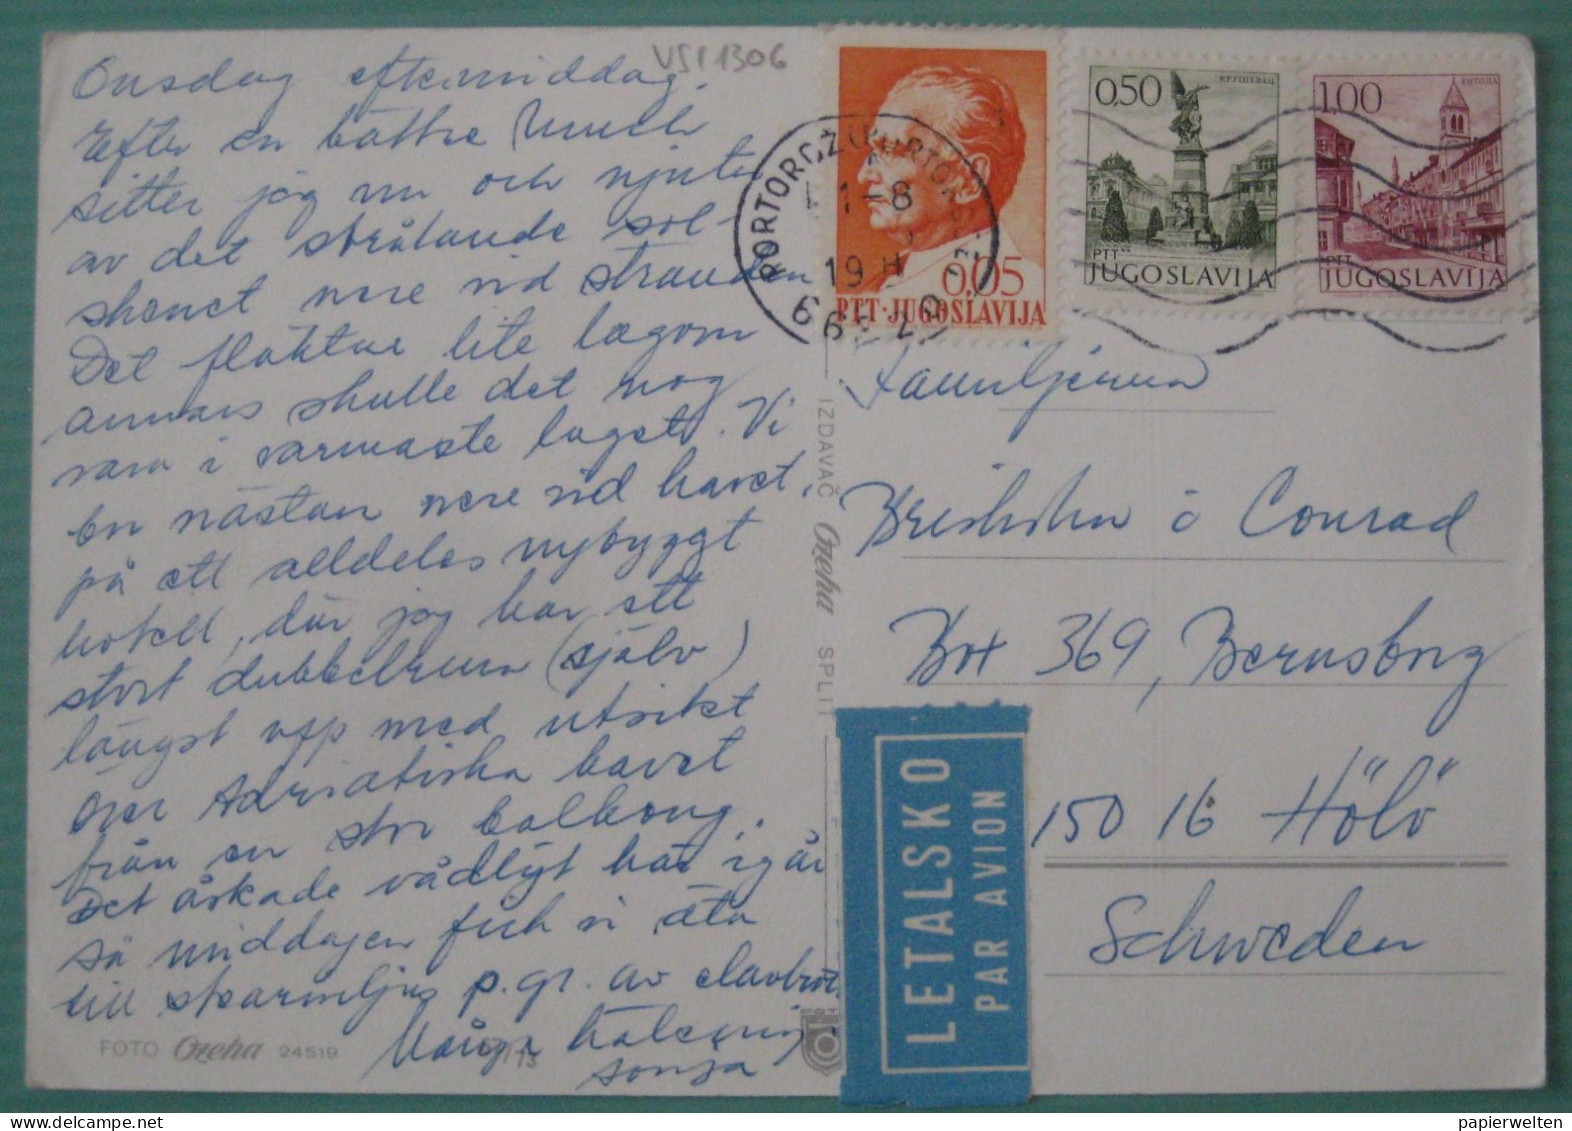 VS11306
Onsdag eftermiddag.
Efter en bättre lunch
sitter jag nu och njuter
av det strålande sol-
skenet nere vid stranden
Det fläktar lite lagom
annars skulle det nog
vara i varmaste laget. Vi
bor nästan nere vid havet,
på ett alldeles nybyggt
hotell, där jag har ett
stort dubbelrum (själv)
längst upp med utsikt
över Adriatiska havet
från en stor balkong.
Det åskade vådligt här igår
så middagen fick vi äta
till skarmljus p.gr. av elavbrott.
Många hälsningar
Sonja
FOTO Ozeha 24519
/73
IZDAVAČ Ozeha SPLIT
PORTOROŽ (PORTOROSE)
1-8
19
66320
0,05
PTT·JUGOSLAVIJA
КРУШЕВАЦ
0,50
PTT
JUGOSLAVIJA
БИТОЛА
1.00
PTT
JUGOSLAVIJA
Familjerna
Breiholm o Conrad
Box 369, Bernsborg
150 16 Hölö
Schweden
LETALSKO
PAR AVION
papierwelten